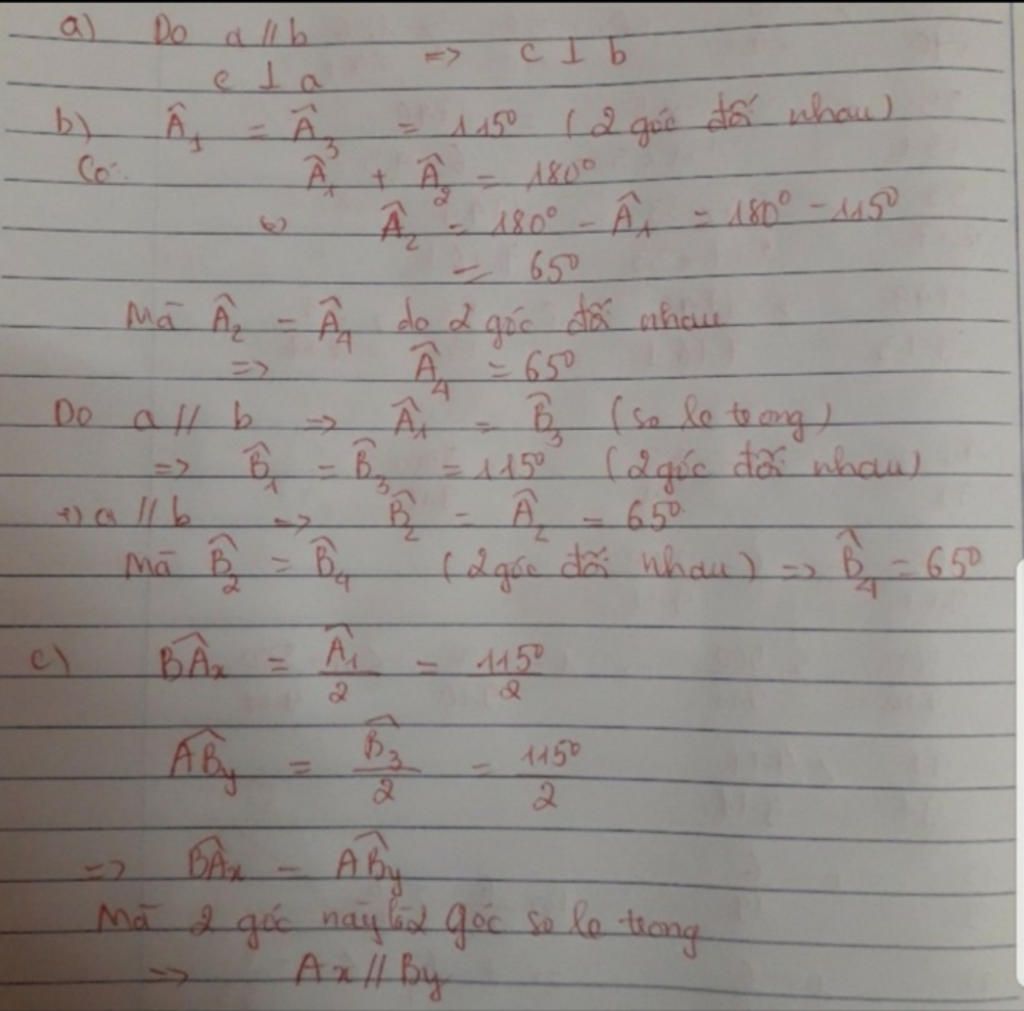 a) Do a // b
c ⊥ a => c ⊥ b
b) Â₁ = Â₃ = 115° (2 góc đối nhau)
Có: Â₁ + Â₂ = 180°
⇔ Â₂ = 180° - Â₁ = 180° - 115°
= 65°
Mà Â₂ = Â₄ do 2 góc đối nhau
=> Â₄ = 65°
Do a // b => Â₁ = B̂₃ (so le trong)
=> B̂₁ = B̂₃ = 115° (2 góc đối nhau)
+) a // b => B̂₂ = Â₂ = 65°
Mà B̂₂ = B̂₄ (2 góc đối nhau) => B̂₄ = 65°
c) BÂx = Â₁/2 = 115°/2
AB̂y = B̂₃/2 = 115°/2
=> BÂx = AB̂y
Mà 2 góc này là 2 góc so le trong
=> Ax // By